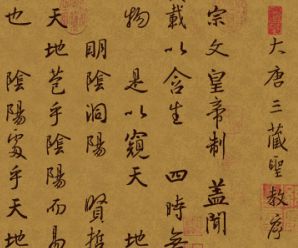 大唐三藏聖教序
宗文皇帝制 蓋聞
載以含生 四時無
物 是以窺天 地
明陰洞陽 賢哲
天地苞乎陰陽而易
也 陰陽處乎天地